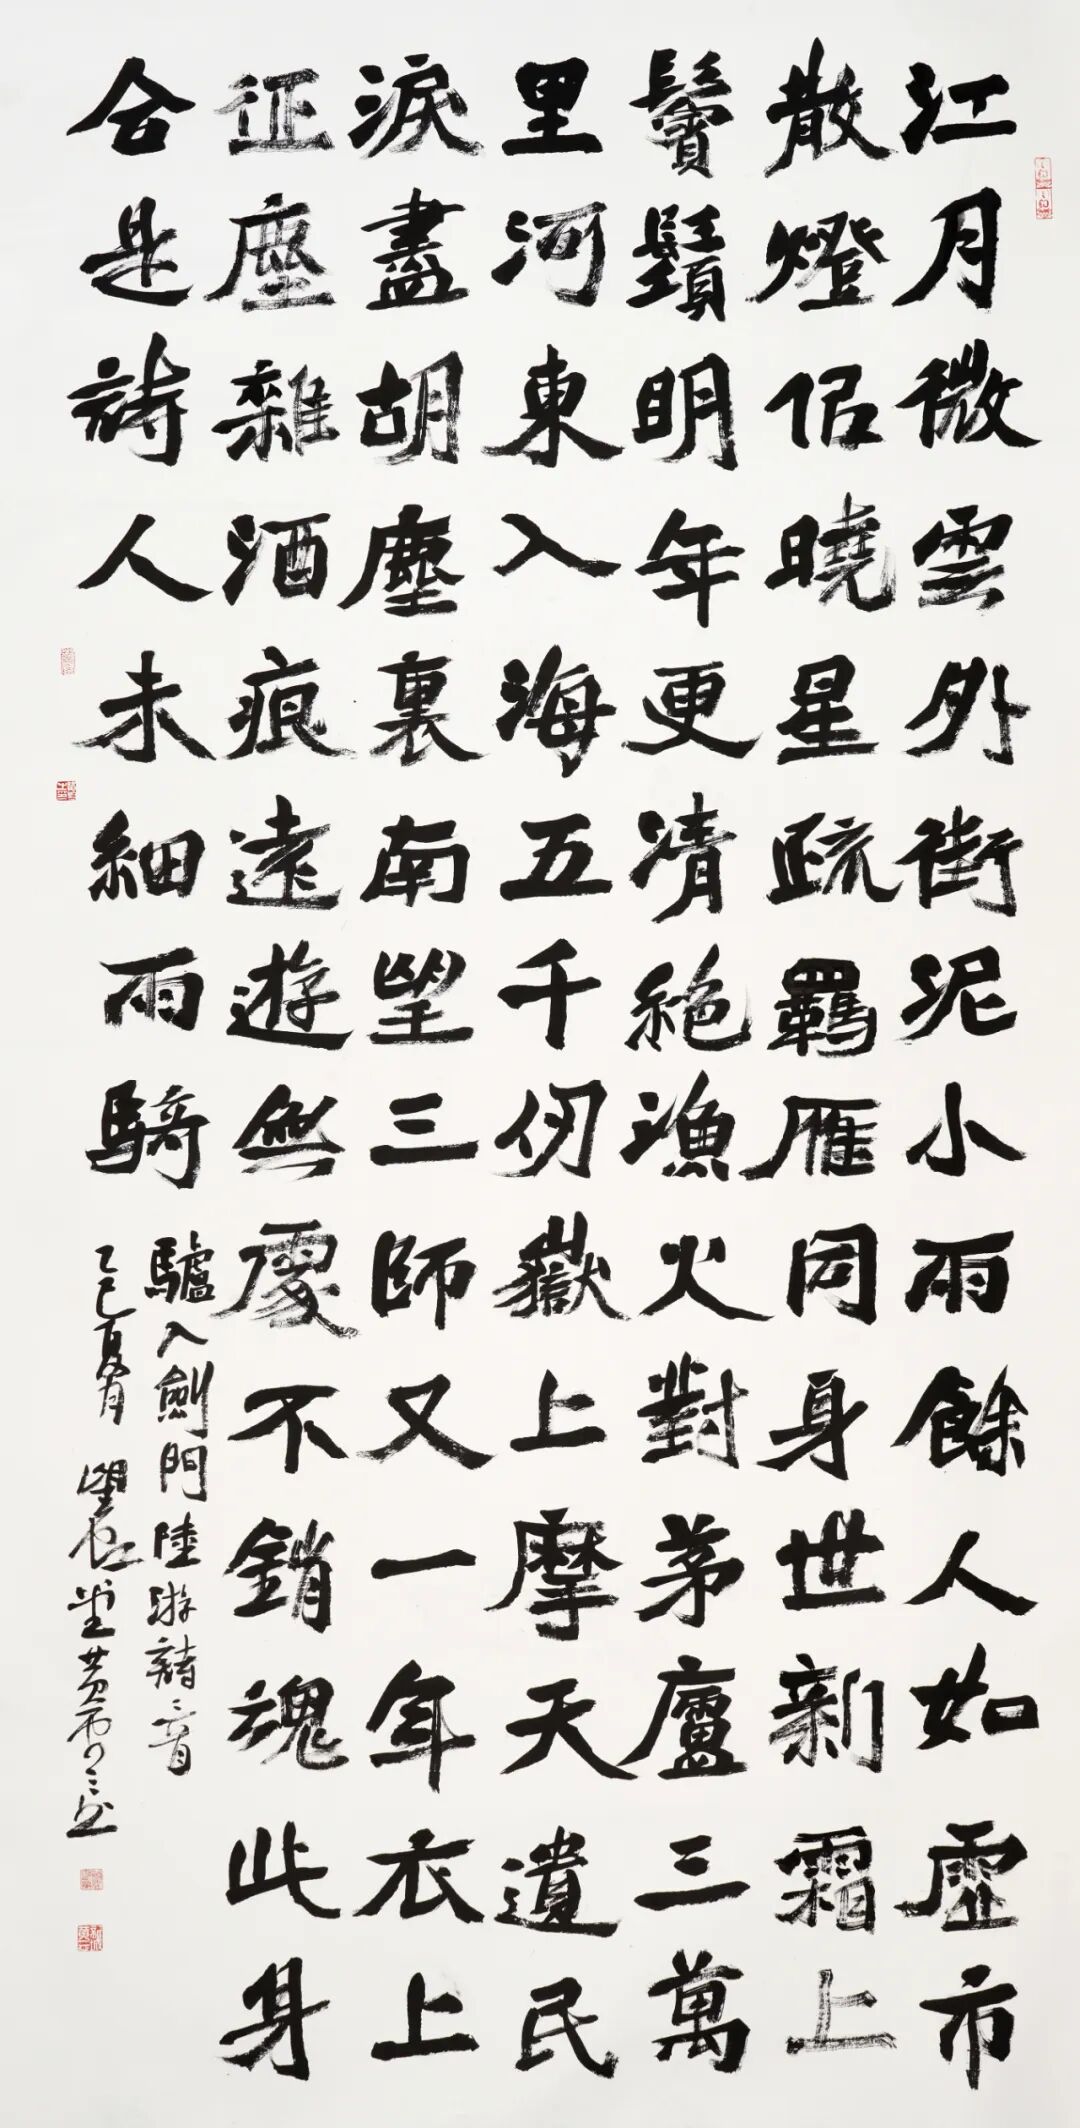 江月微雲外街泥小雨餘人如虛市
散燈侣曉星疏羈雁同身世新霜上
鬢鬚明年更清絕漁火對茅廬三萬
里河東入海五千仞嶽上摩天遺民
淚盡胡塵裏南望三師又一年衣上
征塵雜酒痕遠遊無處不銷魂此身
合是詩人未細雨騎
驢入劍門陸游詩三首
乙巳夏月 望 堂黃